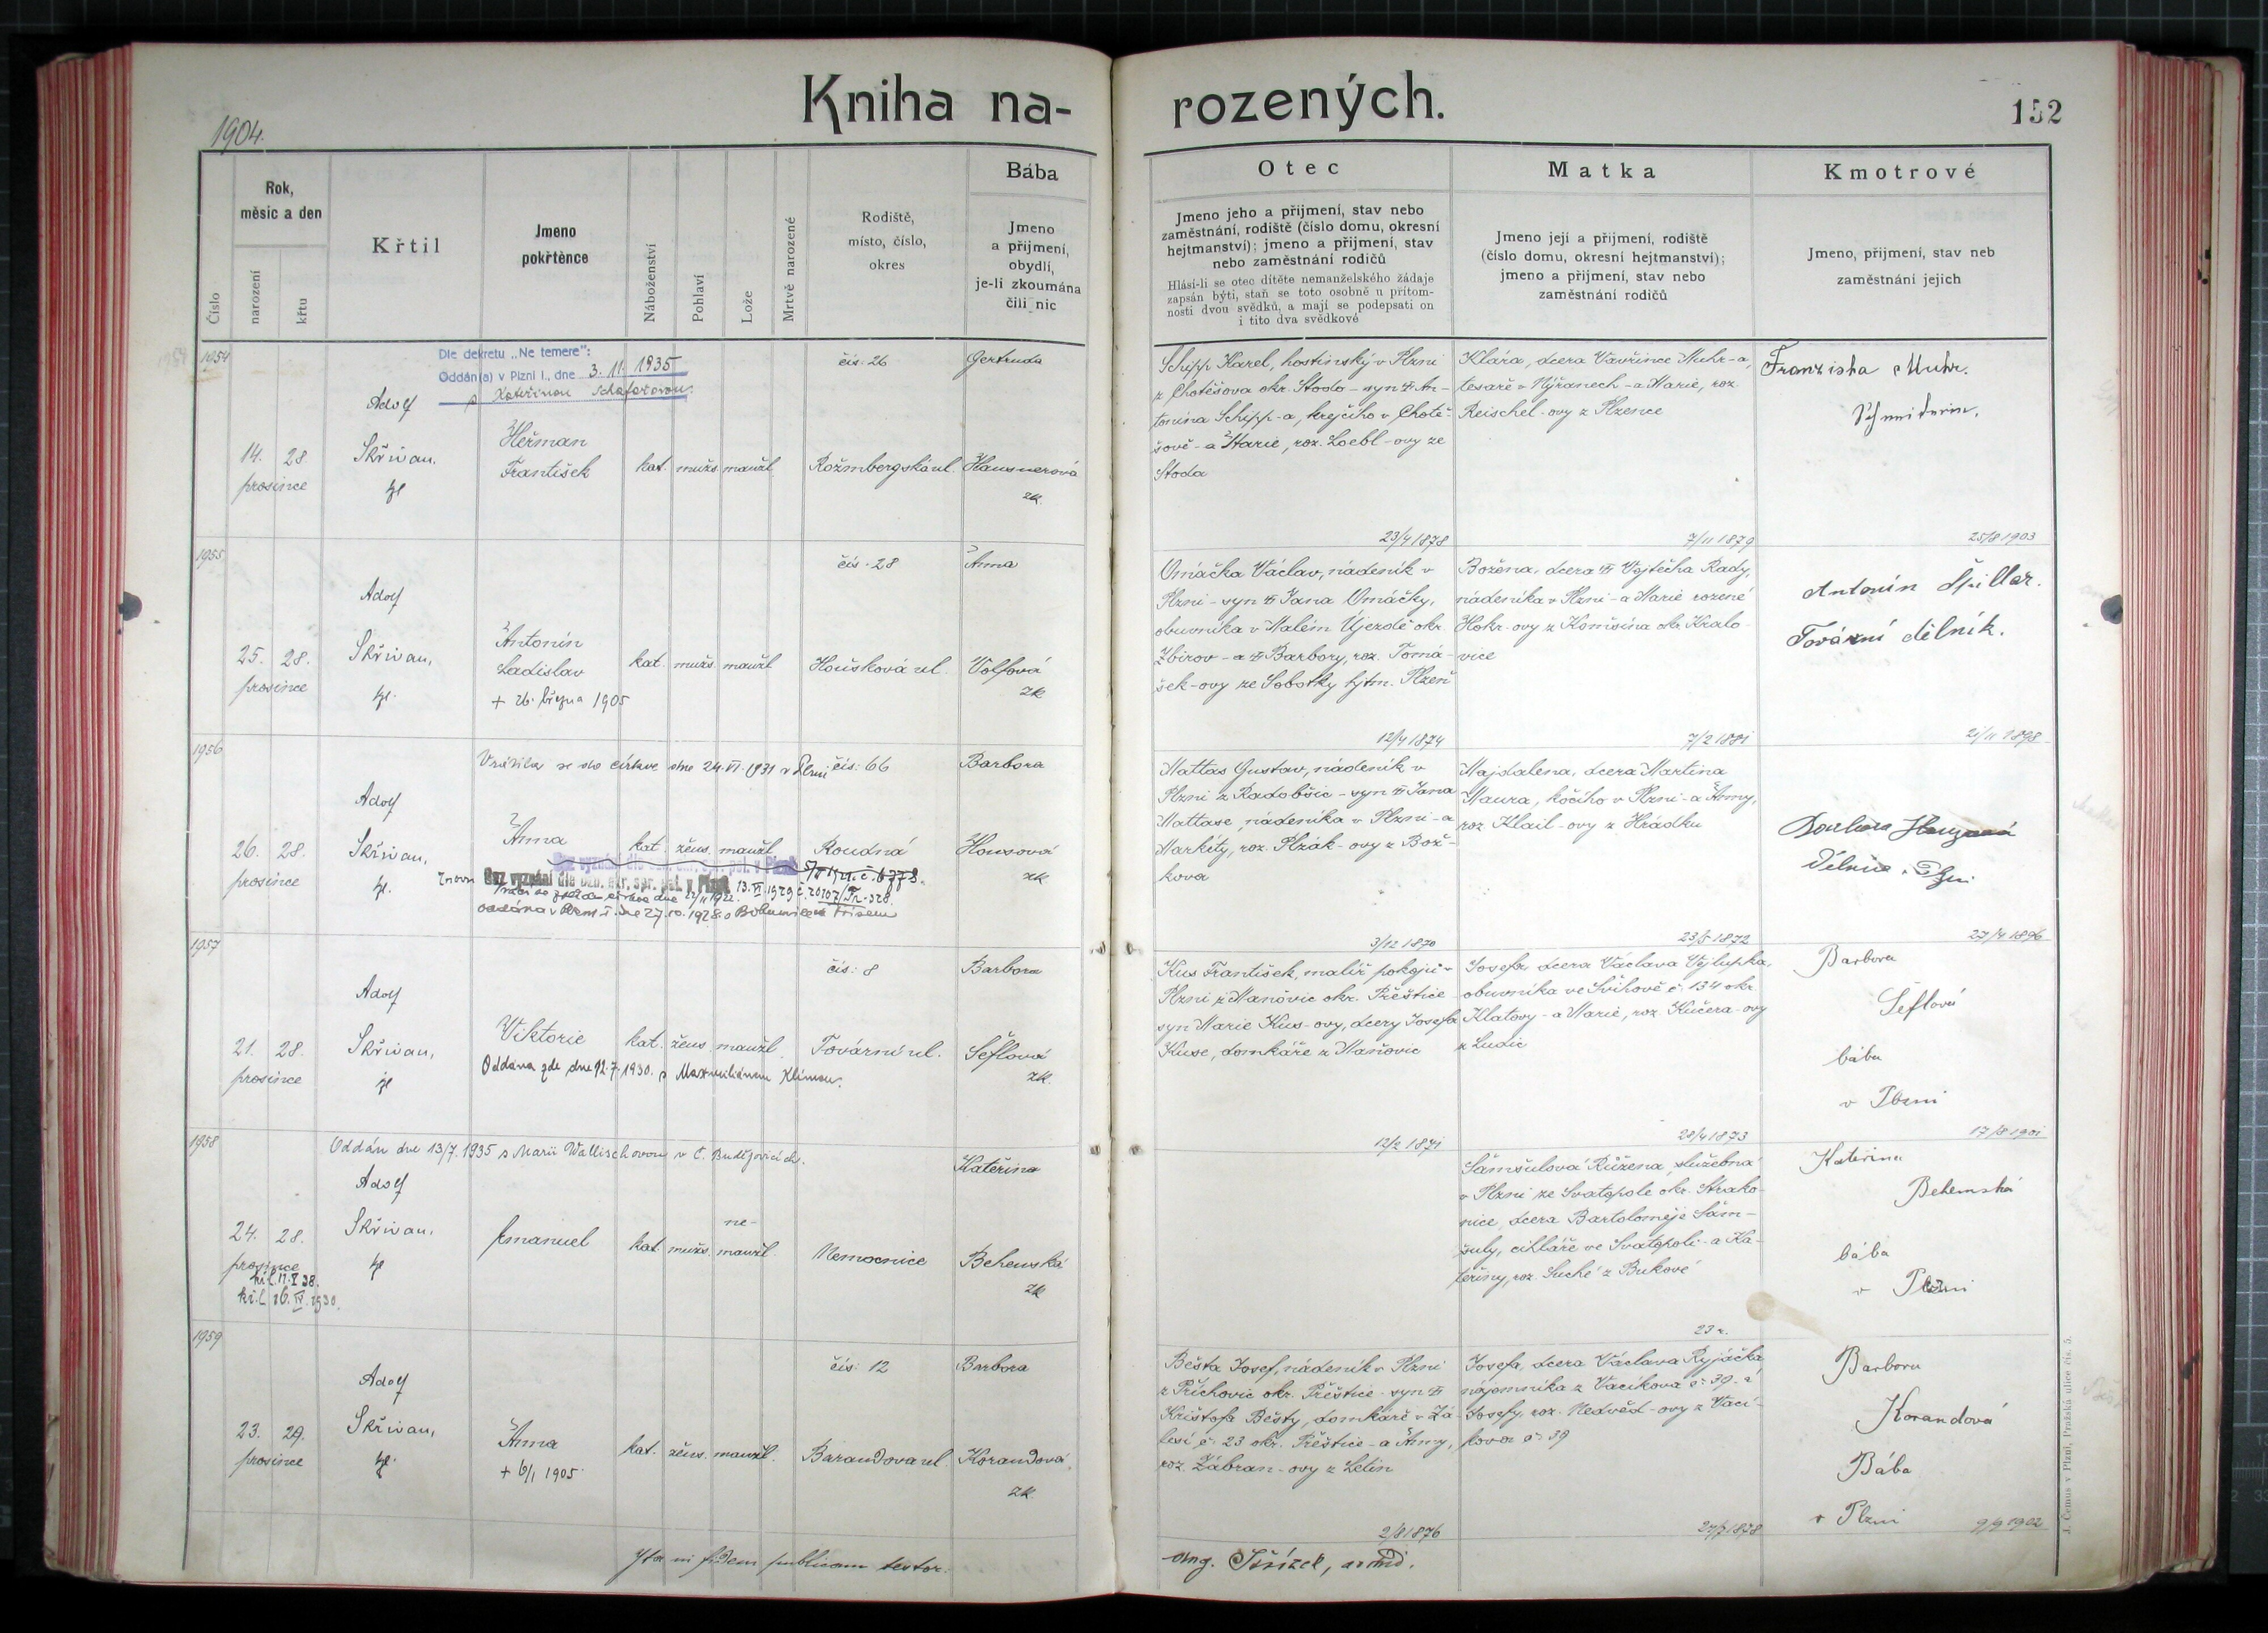 1904.
Kniha na-
rozených.
152
Číslo
Rok,
měsíc a den
narození
křtu
Křtil
Jmeno
pokřtěnce
Náboženství
Pohlaví
Lože
Mrtvě narozené
Rodiště,
místo, číslo,
okres
Bába
Jmeno
a přijmení,
obydlí,
je-li zkoumána
čili nic
Otec
Jmeno jeho a přijmení, stav nebo
zaměstnání, rodiště (číslo domu, okresní
hejtmanství); jmeno a přijmení, stav
nebo zaměstnání rodičů
Hlásí-li se otec dítěte nemanželského žádaje
zapsán býti, staň se toto osobně u přítom-
nosti dvou svědků, a mají se podepsati on
i tito dva svědkové
Matka
Jmeno její a přijmení, rodiště
(číslo domu, okresní hejtmanství);
jmeno a přijmení, stav nebo
zaměstnání rodičů
Kmotrové
Jmeno, přijmení, stav neb
zaměstnání jejich
1954
Dle dekretu „Ne temere":
Oddán(a) v Plzni I., dne 3. 11. 1935
s Kateřinou Schafařovou.
14. 28
prosince
Adolf
Skřivan,
Heřman
František
kat. mužs. manžl.
čís. 26
Rožmbergská ul.
Gertruda
Hausnerová
zk.
Schipp Karel, hostinský v Plzni
z Chotěšova okr. Stodo - syn An-
tonína Schipp-a, krejčího v Chotě-
šově - a Marie, roz. Loebl-ovy ze
Stoda
23/4 1878
Klára, dcera Vavřince Muhr-a,
tesaře v Nýřanech - a Marie, roz.
Reischel-ovy z Plzence
7/11 1879
Franziska Muhr.
25/8 1903
1955
25. 28.
prosince
Adolf
Skřivan,
Antonín
Ladislav
+ 26. března 1905
kat. mužs. manžl
čís. 28
Houšková ul.
Anna
Volfová
zk
Omáčka Václav, nádeník v
Plzni - syn Jana Omáčky,
obuvníka v Malém Újezdě okr.
Zbirov - a Barbory, roz. Tomá-
šek-ovy ze Sobotky hjtm. Plzeň
12/4 1874
Božena, dcera Vojtěcha Rady,
nádeníka v Plzni - a Marie rozené
Hokr-ovy z Komšína okr. Kralo-
vice
7/2 1881
Antonín Špillar.
Tovární dělník.
21/11 1898
1956
Vrátila se do církve dne 24. VI. 1931 v Plzni
26. 28.
prosince
Adolf
Skřivan,
Anna
kat. žens. manžl
čís. 66
Roudná
Barbora
Housová
zk
znovu Bez vyznání dle ozn. okr. spr. pol. v Plzni 13. VI. 1929 č. 20107/
oddána v Plzni I. dne 27. 10. 1928 s Bohumilem
Mattas Gustav, nádeník v
Plzni z Radobšic - syn Jana
Mattase, nádeníka v Plzni - a
Markéty, roz. Plzák-ovy z Bož-
kova
3/12 1870
Majdalena, dcera Martina
Maura, kočího v Plzni - a Anny,
roz. Klail-ovy z Hrádku
23/5 1872
27/4 1896
1957
21. 28.
prosince
Adolf
Skřivan,
Viktorie
kat. žens. manžl.
Oddána zde dne 12. 7. 1930. s Maxmiliánem Klímou.
čís. 8
Tovární ul.
Barbora
Šeflová
zk.
Kus František, malíř pokojů v
Plzni z Maňovic okr. Přeštice
syn Marie Kus-ovy, dcery Josefa
Kuse, domkáře z Maňovic
12/2 1871
Josefa dcera Václava Vejlupka,
obuvníka ve Švihově č. 134 okr.
Klatovy - a Marie, roz. Kučera-ovy
z Ludic
28/4 1873
Barbora
Šeflová
bába
v Plzni
17/8 1901
1958
Oddán dne 13/7. 1935 s Marií Wallischovou v Č. Budějovicích.
24. 28.
prosince
Adolf
Skřivan,
Emanuel
kat. mužs. ne-
manžl.
Nemocnice
Kateřina
Behenská
zk
Šámšulová Růžena, služebná
v Plzni ze Svatopole okr. Strako-
nice, dcera Bartoloměje Šám-
šuly, cihláře ve Svatopoli - a Ka-
teřiny, roz. Suché z Bukové
23 r.
Kateřina
Behenská
bába
v Plzni
1959
23. 29.
prosince
Adolf
Skřivan,
Anna
+ 6/1 1905
kat. žens. manžl.
čís. 12
Barandova ul.
Barbora
Korandová.
zk.
Běsta Josef, nádeník v Plzni
z Příchovic okr. Přeštice - syn
Krištofa Běsty, domkáře v Zá-
lesí č. 23 okr. Přeštice - a Anny,
roz. Zábran-ovy z Letin
2/8 1876
Josefa, dcera Václava Ryjáčka
nájemníka z Vacíkova č. 39 - a
Josefy, roz. Nedvěd-ovy z Vací-
kova č. 39
Barbora
Korandová
Bába
v Plzni
9/9 1902
Ita in fidem publicam testor.
J. Čemus v Plzni, Pražská ulice čís. 5.